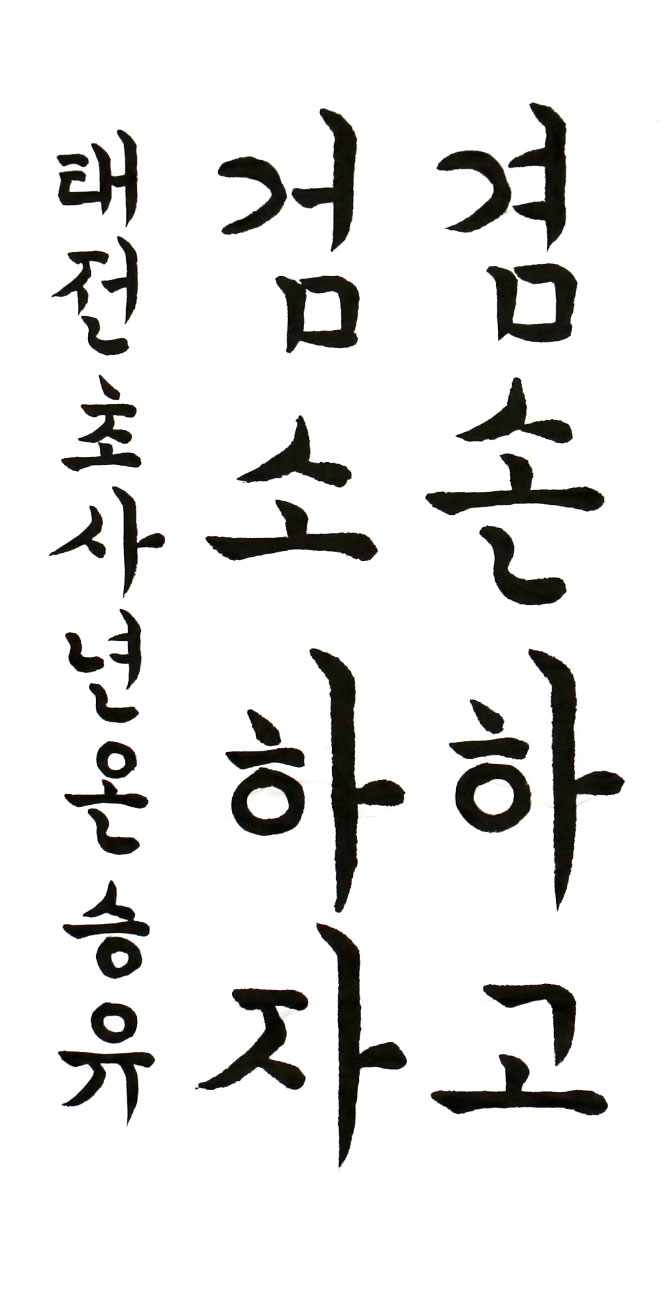 겸손하고
검소하자
태전초사년온승유